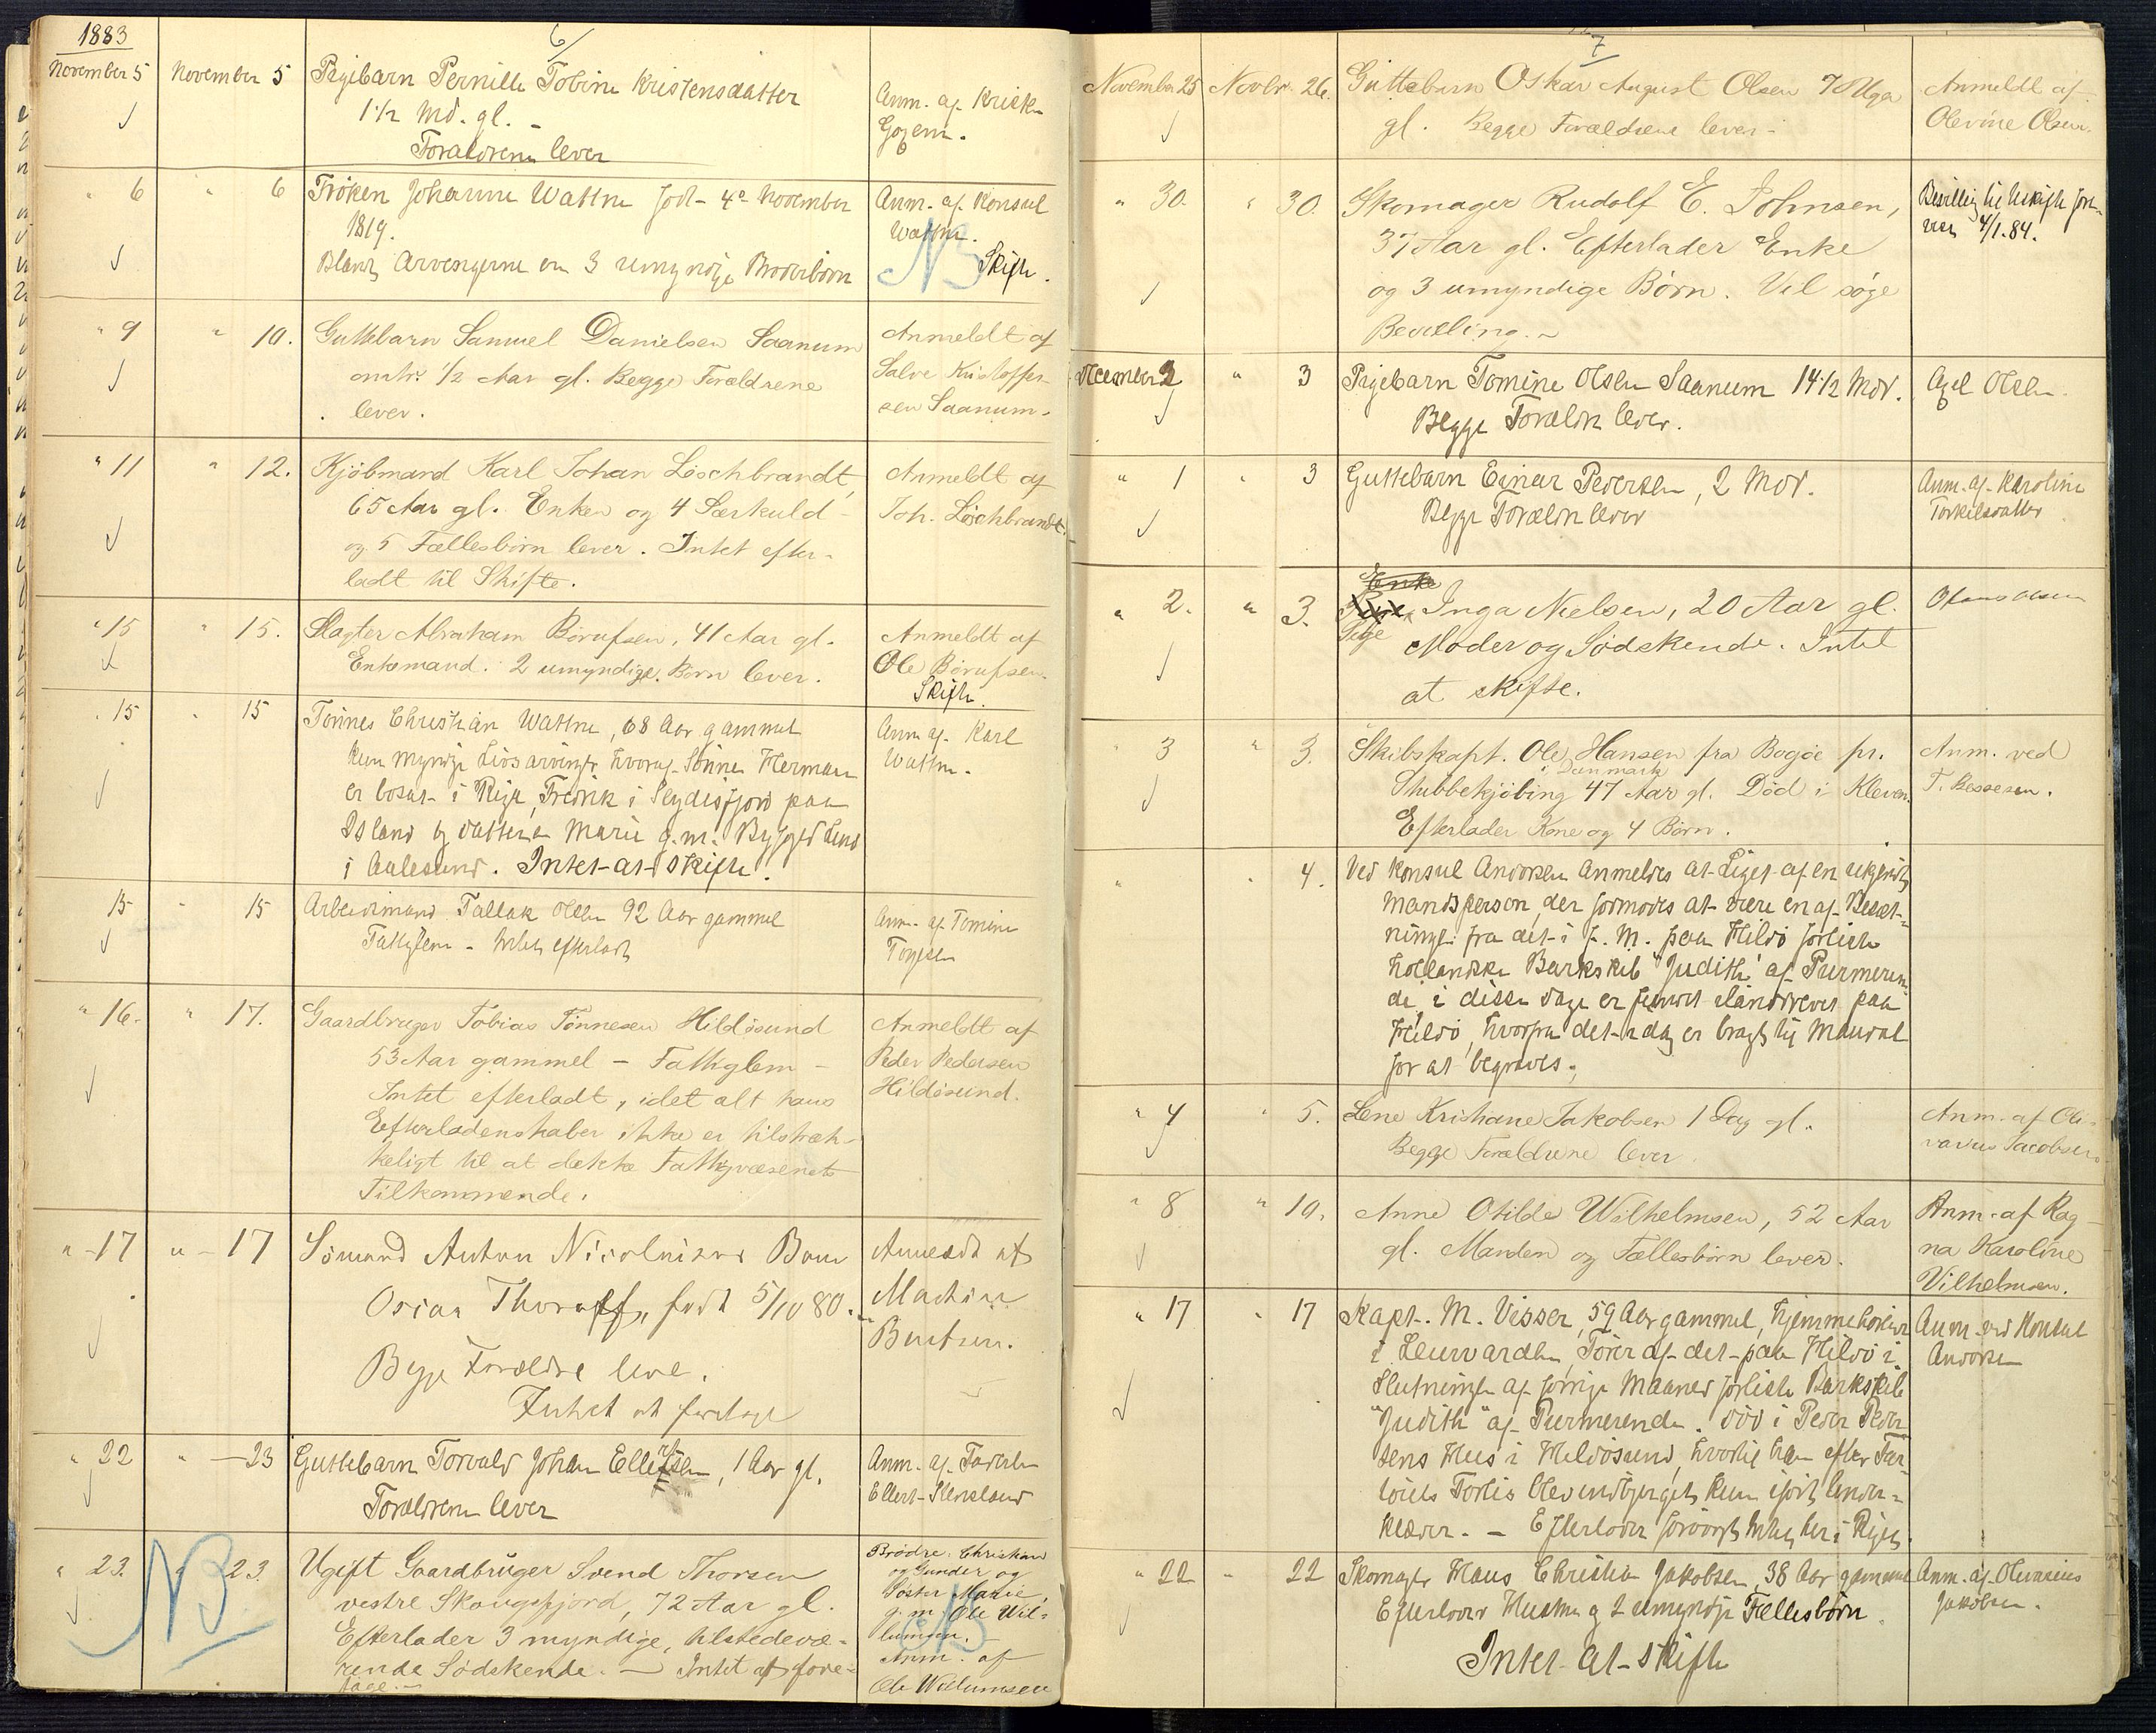 1883
6/
November 5 November 5 Pigebarn Pernille Tobine Kristensdatter
1 1/2 Md. gl. -
Forældrene lever
Anm. af
" 6 " 6 Frøken Johanne Wattne født 4de November
1819.
Blandt Arvingerne en 3 umyndige Broderbørn
Anm. af Konsul
Wattne.
NB Skifte.
" 9 " 10. Guttebarn Samuel Danielsen Saanum
omtr. 1/2 Aar gl. Begge Forældrene
lever.
Anmeldt af
Salve Kristoffer-
sen Saanum.
" 11 " 12. Kjøbmand Karl Johan Löschbrandt,
65 Aar gl. Enken og 4 Særkuld-
og 5 Fællesbørn lever. Intet efter-
ladt til Skifte.
Anmeldt af
Joh. Löschbrandt.
" 15 " 15. Slagter Abraham Børufsen, 41 Aar gl.
Enkemand. 2 umyndige Børn lever.
Anmeldt af
Ole Børufsen.
Skifte.
" 15 " 15 Tønnes Christian Wattne, 68 Aar gammel
Kun myndige Livsarvinger hvoraf Sønnen Herman
er bosat i Riga, Fredrik i Seydisfjord paa
Island og Datteren Marie g. m.
i Aalesund. Intet at skifte.
Anm. af Karl
Wattne.
15 " 15 Arbeidsmand Tallak Olsen 92 Aar gammel
Fattiglem - Intet efterladt
Anm. af Tomine
" 16. " 17. Gaardbruger Tobias Tønnesen Hildøsund
53 Aar gammel - Fattiglem -
Intet efterladt, idet alt hans
Efterladenskaber ikke er tilstræk-
keligt til at dække Fattigvæsenets
Tilkommende.
Anmeldt af
Peder Pedersen
Hildøsund.
" - 17 " - 17 Sømand Anton Nicolaisens Barn
Oscar Thoralf, født 5/10 80.
Begge Forældre leve.
Intet at foretage
Anmeldt af
Martine
" 22 " - 23 Guttebarn Torvald Johan Ellertsen, 1 Aar gl.
Forældrene lever
Anm. af Faderen
Ellert
" 23. NB " 23. Ugift Gaardbruger Svend Thorsen
vestre Skougsfjord, 72 Aar gl.
Efterlader 3 myndige, tilstedevæ-
rende Sødskende. - Intet at fore-
tage. -
Brødre: Christian
og Gunder og
Søster Marie,
g. m. Ole Wil-
lumsen.
NB
Anm. af
Ole Willumsen
7
November 25 Novbr. 26. Guttebarn Oskar August Olsen 7 Uger
gl. Begge Forældrene lever -
Anmeldt af
Olevine Olsen.
" 30. " 30. Skomager Rudolf E. Johnsen,
37 Aar gl. Efterlader Enke
og 3 umyndige Børn. Vil søge
Bevilling. -
Bevilling til Uskifte
4/1. 84.
December 2 " 3 Pigebarn Tomine Olsen Saanum 14 1/2 Md.
Begge Forældre lever.
Olsen.
" 1 " 3 Guttebarn Einar Pedersen, 2 Md.
Begge Forældre lever
Anm. af Karoline
Torkilsdatter
Enke
" 2. " 3. Inga Nielsen, 20 Aar gl.
Pige
Moder og Sødskende. Intet
at skifte.
" 3 " 3. Skibskapt. Ole Hansen fra Bogøe pr.
i Danmark
Stubbekjøbing 47 Aar gl. Død i Kleven.
Efterlader Kone og 4 Børn.
Anm. ved
T. Bessesen.
" " 4. Ved Konsul Andorsen anmeldes at Liget af en ukjendt
Mandsperson, der formodes at være en af Besæt-
ningen fra det i f. M. paa Hildø forliste
hollandske Barkskib "Judith" af Purmeren-
de, i disse Dage er fundet ilanddrevet paa
Hildø, hvorfra det idag er bragt til Mandal
for at begraves.
" 4 " 5. Lene Kristiane Jakobsen 1 Dag gl.
Begge Forældrene lever.
Anm. af Oli-
varius Jacobsen.
" 8 " 10. Anne Otilde Wilhelmsen, 52 Aar
gl. Manden og Fællesbørn lever.
Anm. af Rag-
na Karoline
Vilhelmsen.
" 17 " 17 Kapt. M. Visser, 59 Aar gammel, hjemmehørende
i Leuwarden, Fører af det paa Hildø i
Slutningen af forrige Maaned forliste Barkskib
"Judith" af Purmerende. Død i Peder Peder-
sens Hus i Hildøsund, hvortil han efter Far-
tøiets Forlis kun iført Under-
klæder. - Efterlader forøvrigt Intet her i Riget.
Anm. ved Konsul
Andorsen
" 22 " 22 Skomager Hans Christian Jakobsen 38 Aar gammel
Efterlader Hustru og 2 umyndige Fællesbørn.
Intet at skifte
Anm. af Olivarius
Jakobsen.